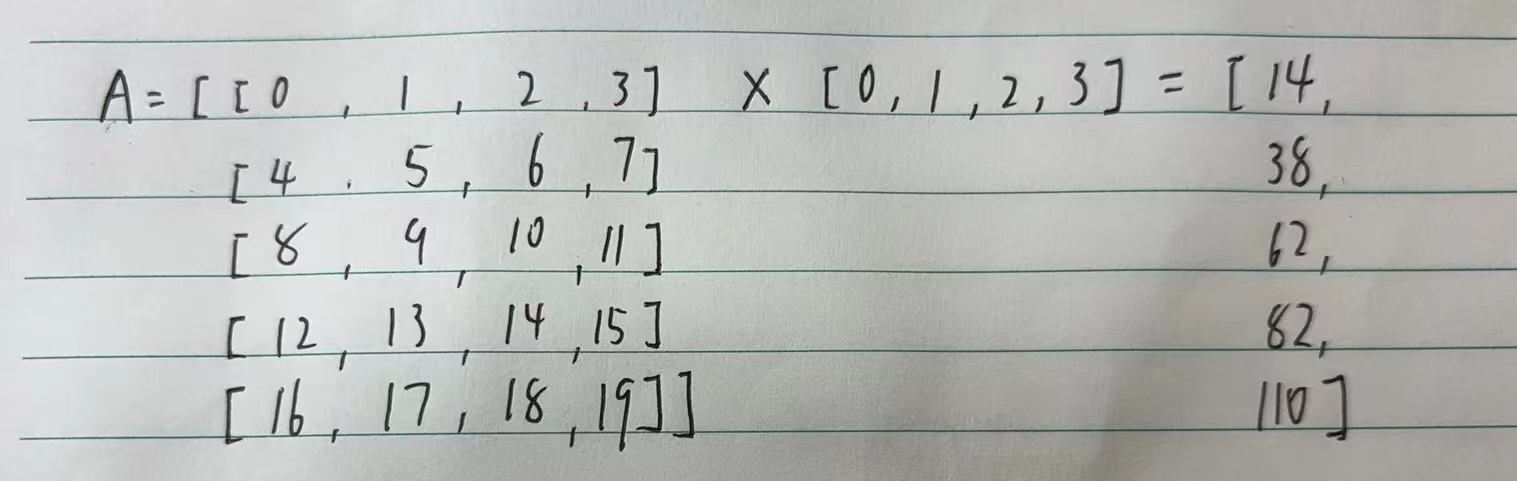 A = [ [ 0 , 1 , 2 , 3 ] × [ 0 , 1 , 2 , 3 ] = [ 14 ,
[ 4 . 5 , 6 , 7 ] 38 ,
[ 8 , 9 , 10 , 11 ] 62 ,
[ 12 , 13 , 14 , 15 ] 82 ,
[ 16 , 17 , 18 , 19 ] ] 110 ]